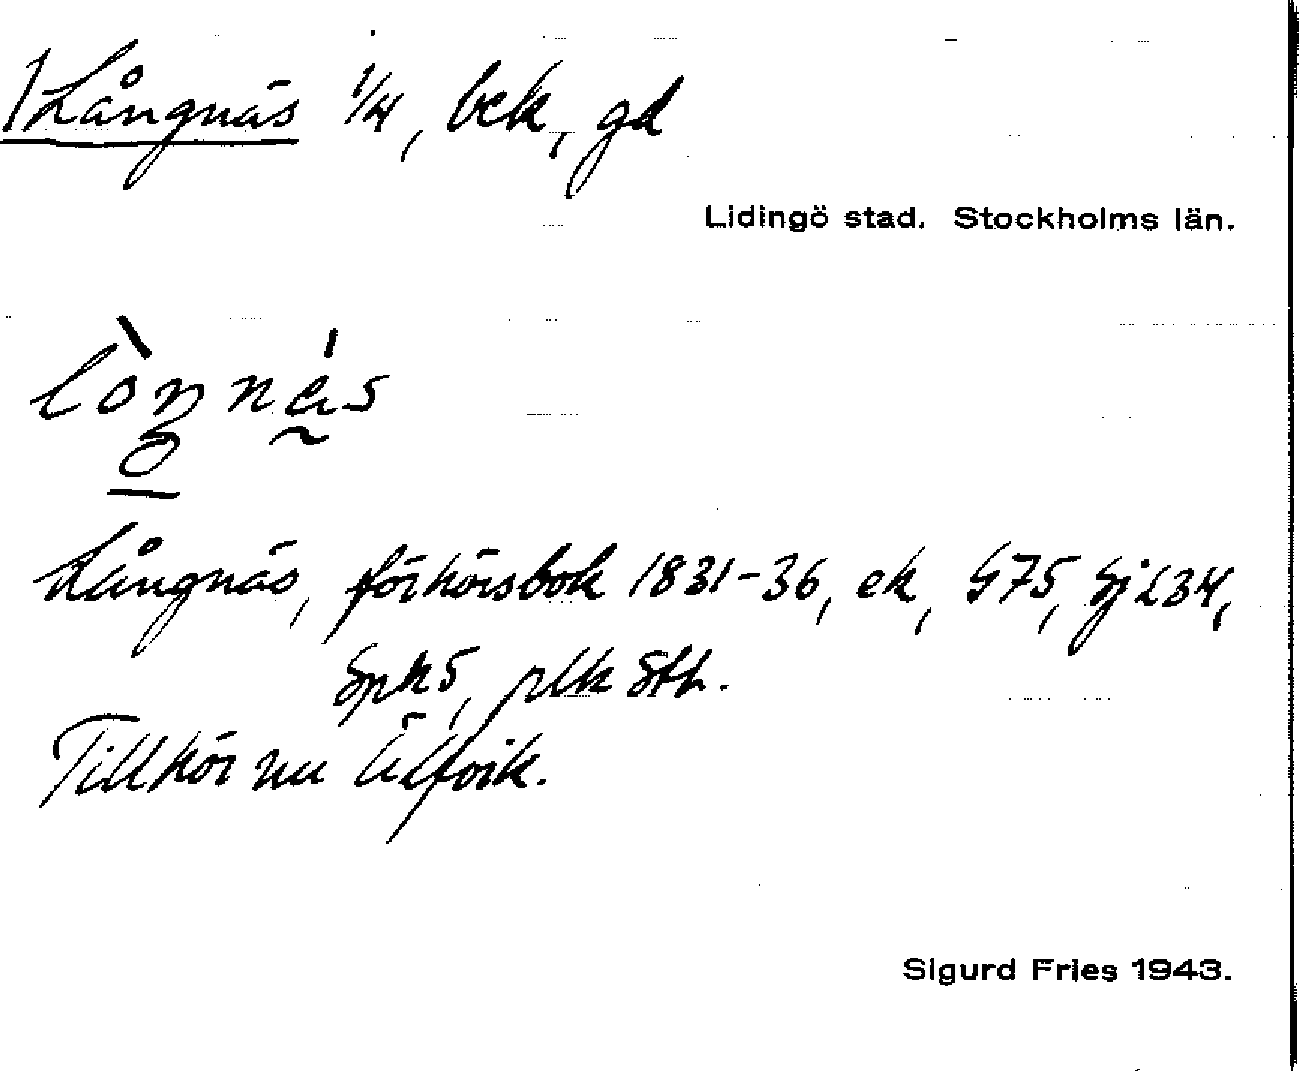 1 Långnäs 1/4, bek, gd
Lidingö stad. Stockholms län.
Långnäs, förhörsbok 1831-36, ek, G75, SjL34,
SpK5, plk Sth.
Tillhör nu Elfvik.
Sigurd Fries 1943.